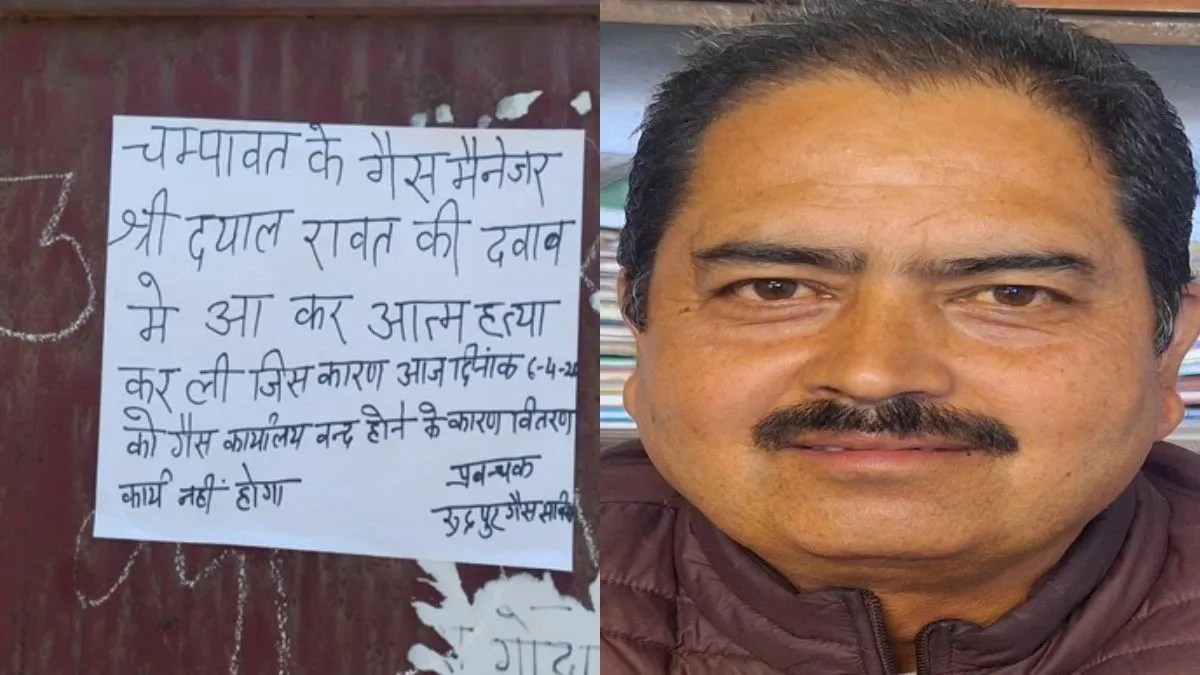 चम्पावत के गैस मैनेजर
श्री दयाल रावत की दवाब
मे आ कर आत्म हत्या
कर ली जिस कारण आज दिनांक 6-4-26
को गैस कार्यालय वन्द होने के कारण वितरण
कार्य नहीं होगा
प्रवन्धक
रुद्रपुर गैस
3